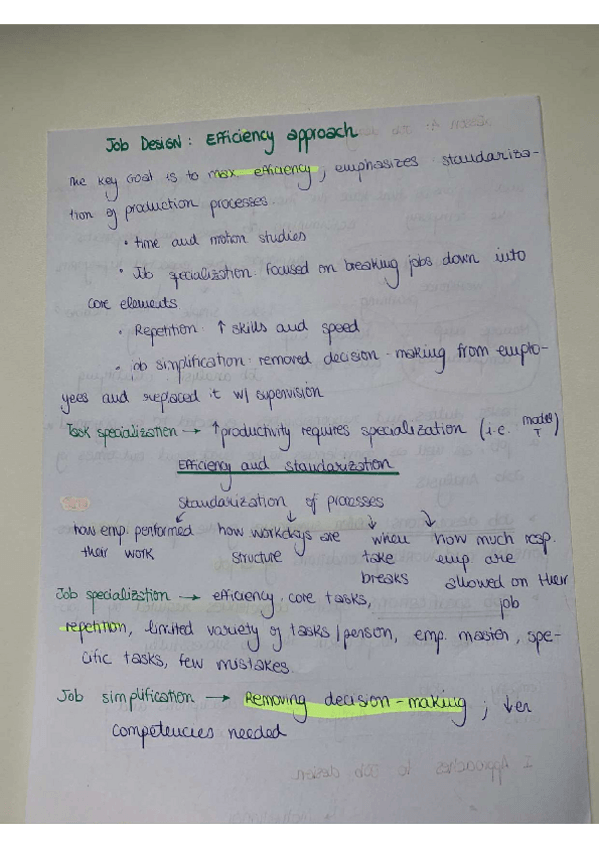 Job Design: Efficiency approach
The key goal is to max efficiency, emphasizes standariza-
tion of production processes
• time and motion studies
• Job specialization: focused on breaking jobs down into
core elements
• Repetition: ↑ skills and speed
• job simplification: removed decision-making from emplo-
yees and replaced it w/ supervision
Task specialization → ↑ productivity requires specialization (i.e. model T)
Efficiency and standarization
Standarization of processes
how emp. performed their work
how workdays are structure
when take breaks
how much resp. emp are allowed on their job
Job specialization → efficiency, core tasks,
repetition, limited variety of tasks/person, emp. master, spe-
cific tasks, few mistakes.
Job simplification → Removing decision-making; ↓er
competencies needed
I Approaches to Job design